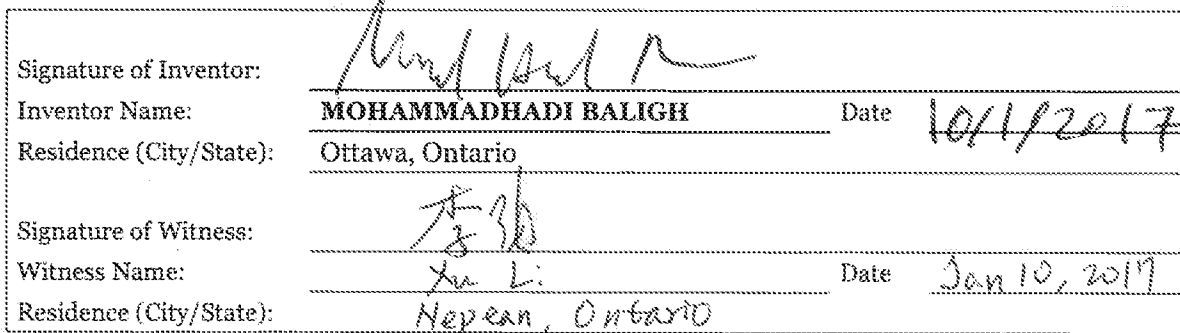 Signature of Inventor:
Inventor Name: MOHAMMADHADI BALIGH Date 10/1/2017
Residence (City/State): Ottawa, Ontario
Signature of Witness: 李
Witness Name: Xu Li Date Jan 10, 2017
Residence (City/State): Nepean, Ontario